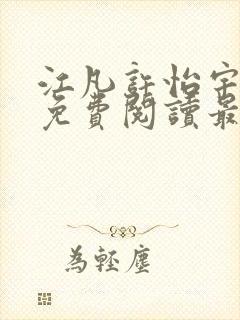 江凡許怡宁
免費閱讀最
為輕塵